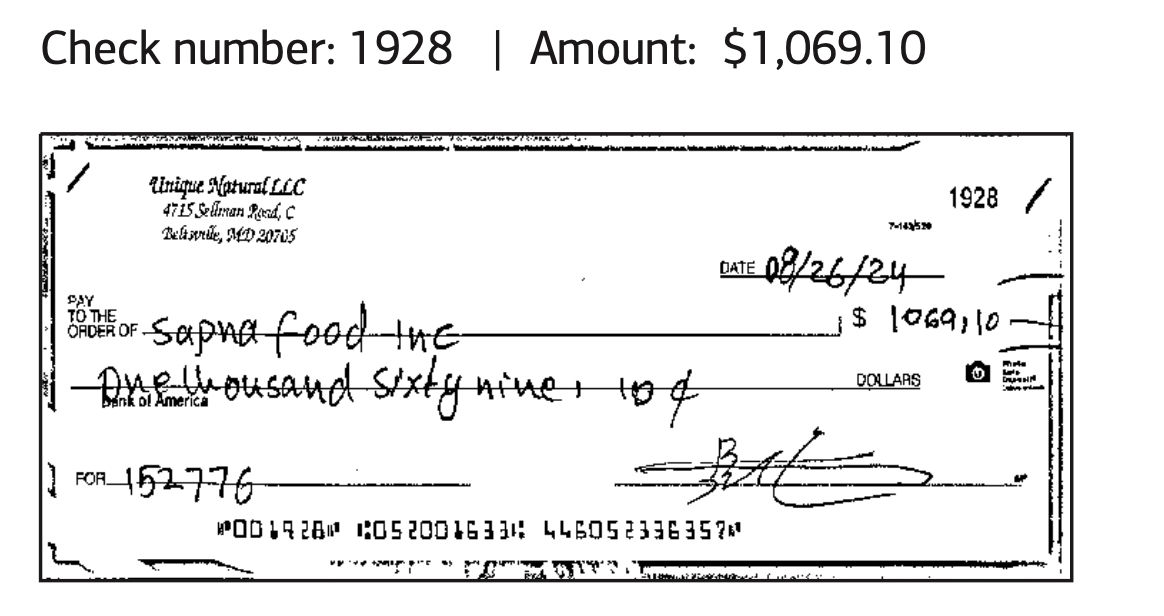 Check number: 1928 | Amount: $1,069.10
Unique Natural LLC
4715 Sellman Road, C
Beltsville, MD 20705
1928
7-163/520
DATE 08/26/24
PAY
TO THE
ORDER OF Sapna Food Inc $ 1069,10
One thousand sixty nine, 10 ¢ DOLLARS
Bank of America
Photo
Safe
Deposit
FOR 152776
MP
⑈001928⑈ ⑆052001633⑆ 446052336357⑈